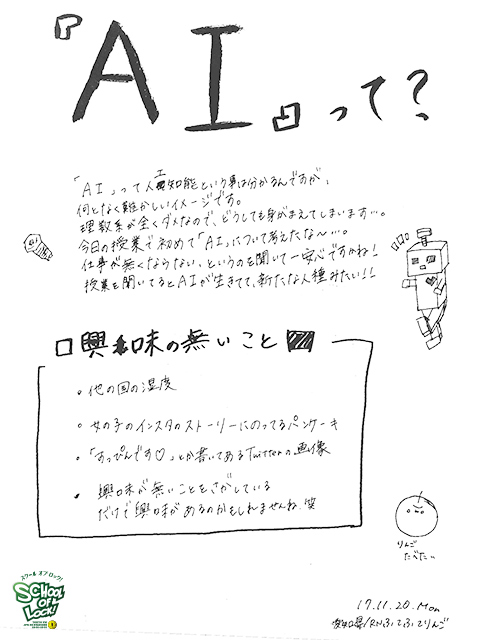 『AI』って?
「AI」って人工知能という事は分かるんですが、
何となく難かしいイメージです。
理数系が全くダメなので、どうしても身がまえてしまいます…。
今日の授業で初めて「AI」について考えたな〜…。
仕事が無くならない、というのを聞いて一安心ですかね!
授業を聞いてるとAIが生きてて、新たな人種みたい!!
興味の無いこと
・他の国の湿度
・女の子のインスタのストーリーにのってるパンケーキ
・「すっぴんです♡」とか書いてあるTwitterの画像
・興味が無いことをさがしている
だけで興味があるのかもしれませんね、笑
りんご
たべた
スクール オブ ロック!
SCHOOL
OF
LOCK!
17.11.20.Mon
愛知県/RNふてふてりんご